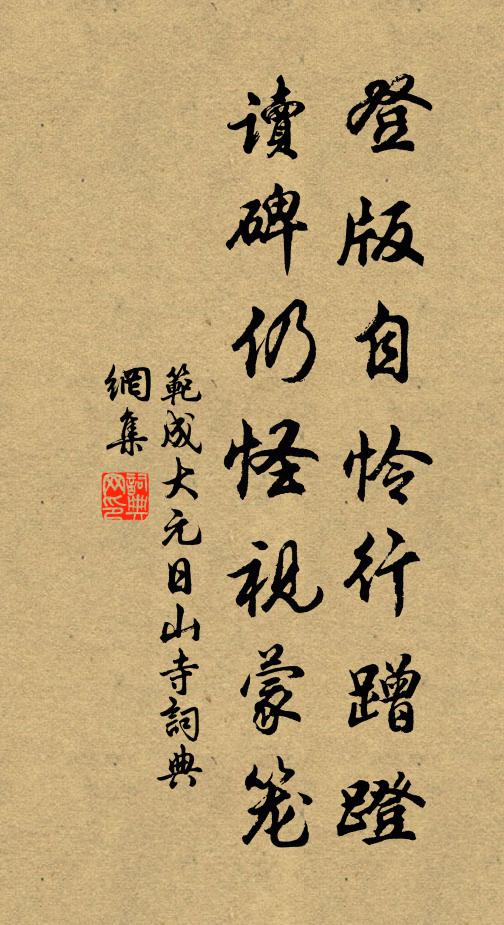 登版自怜行蹭蹬
讀碑仍怪視蒙笼
範成大元日山寺詞典
網集
詞典
网印